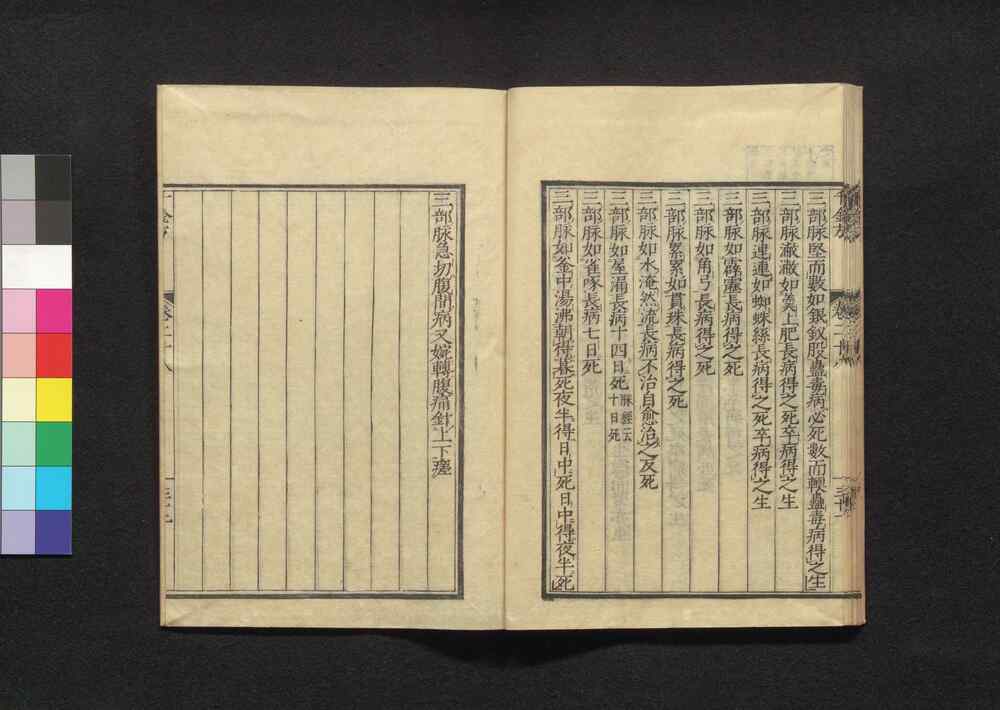 三部脉堅而數如銀釵股蠱毒病必死數而軟蠱毒病得之生
三部脉潎潎如羹上肥長病得之死卒病得之生
三部脉連連如蜘蛛絲長病得之死卒病得之生
三部脉如霹靂長病得之死
三部脉如角弓長病得之死
三部脉累累如貫珠長病得之死
三部脉如水淹然流長病不治自愈治之反死
三部脉如屋漏長病十四日死脉經云十日死
三部脉如雀啄長病七日死
三部脉如釜中湯沸朝得暮死夜半得日中死日中得夜半死
三部脉急切腹間病又婉轉腹痛針上下瘥
千金方
卷二十八